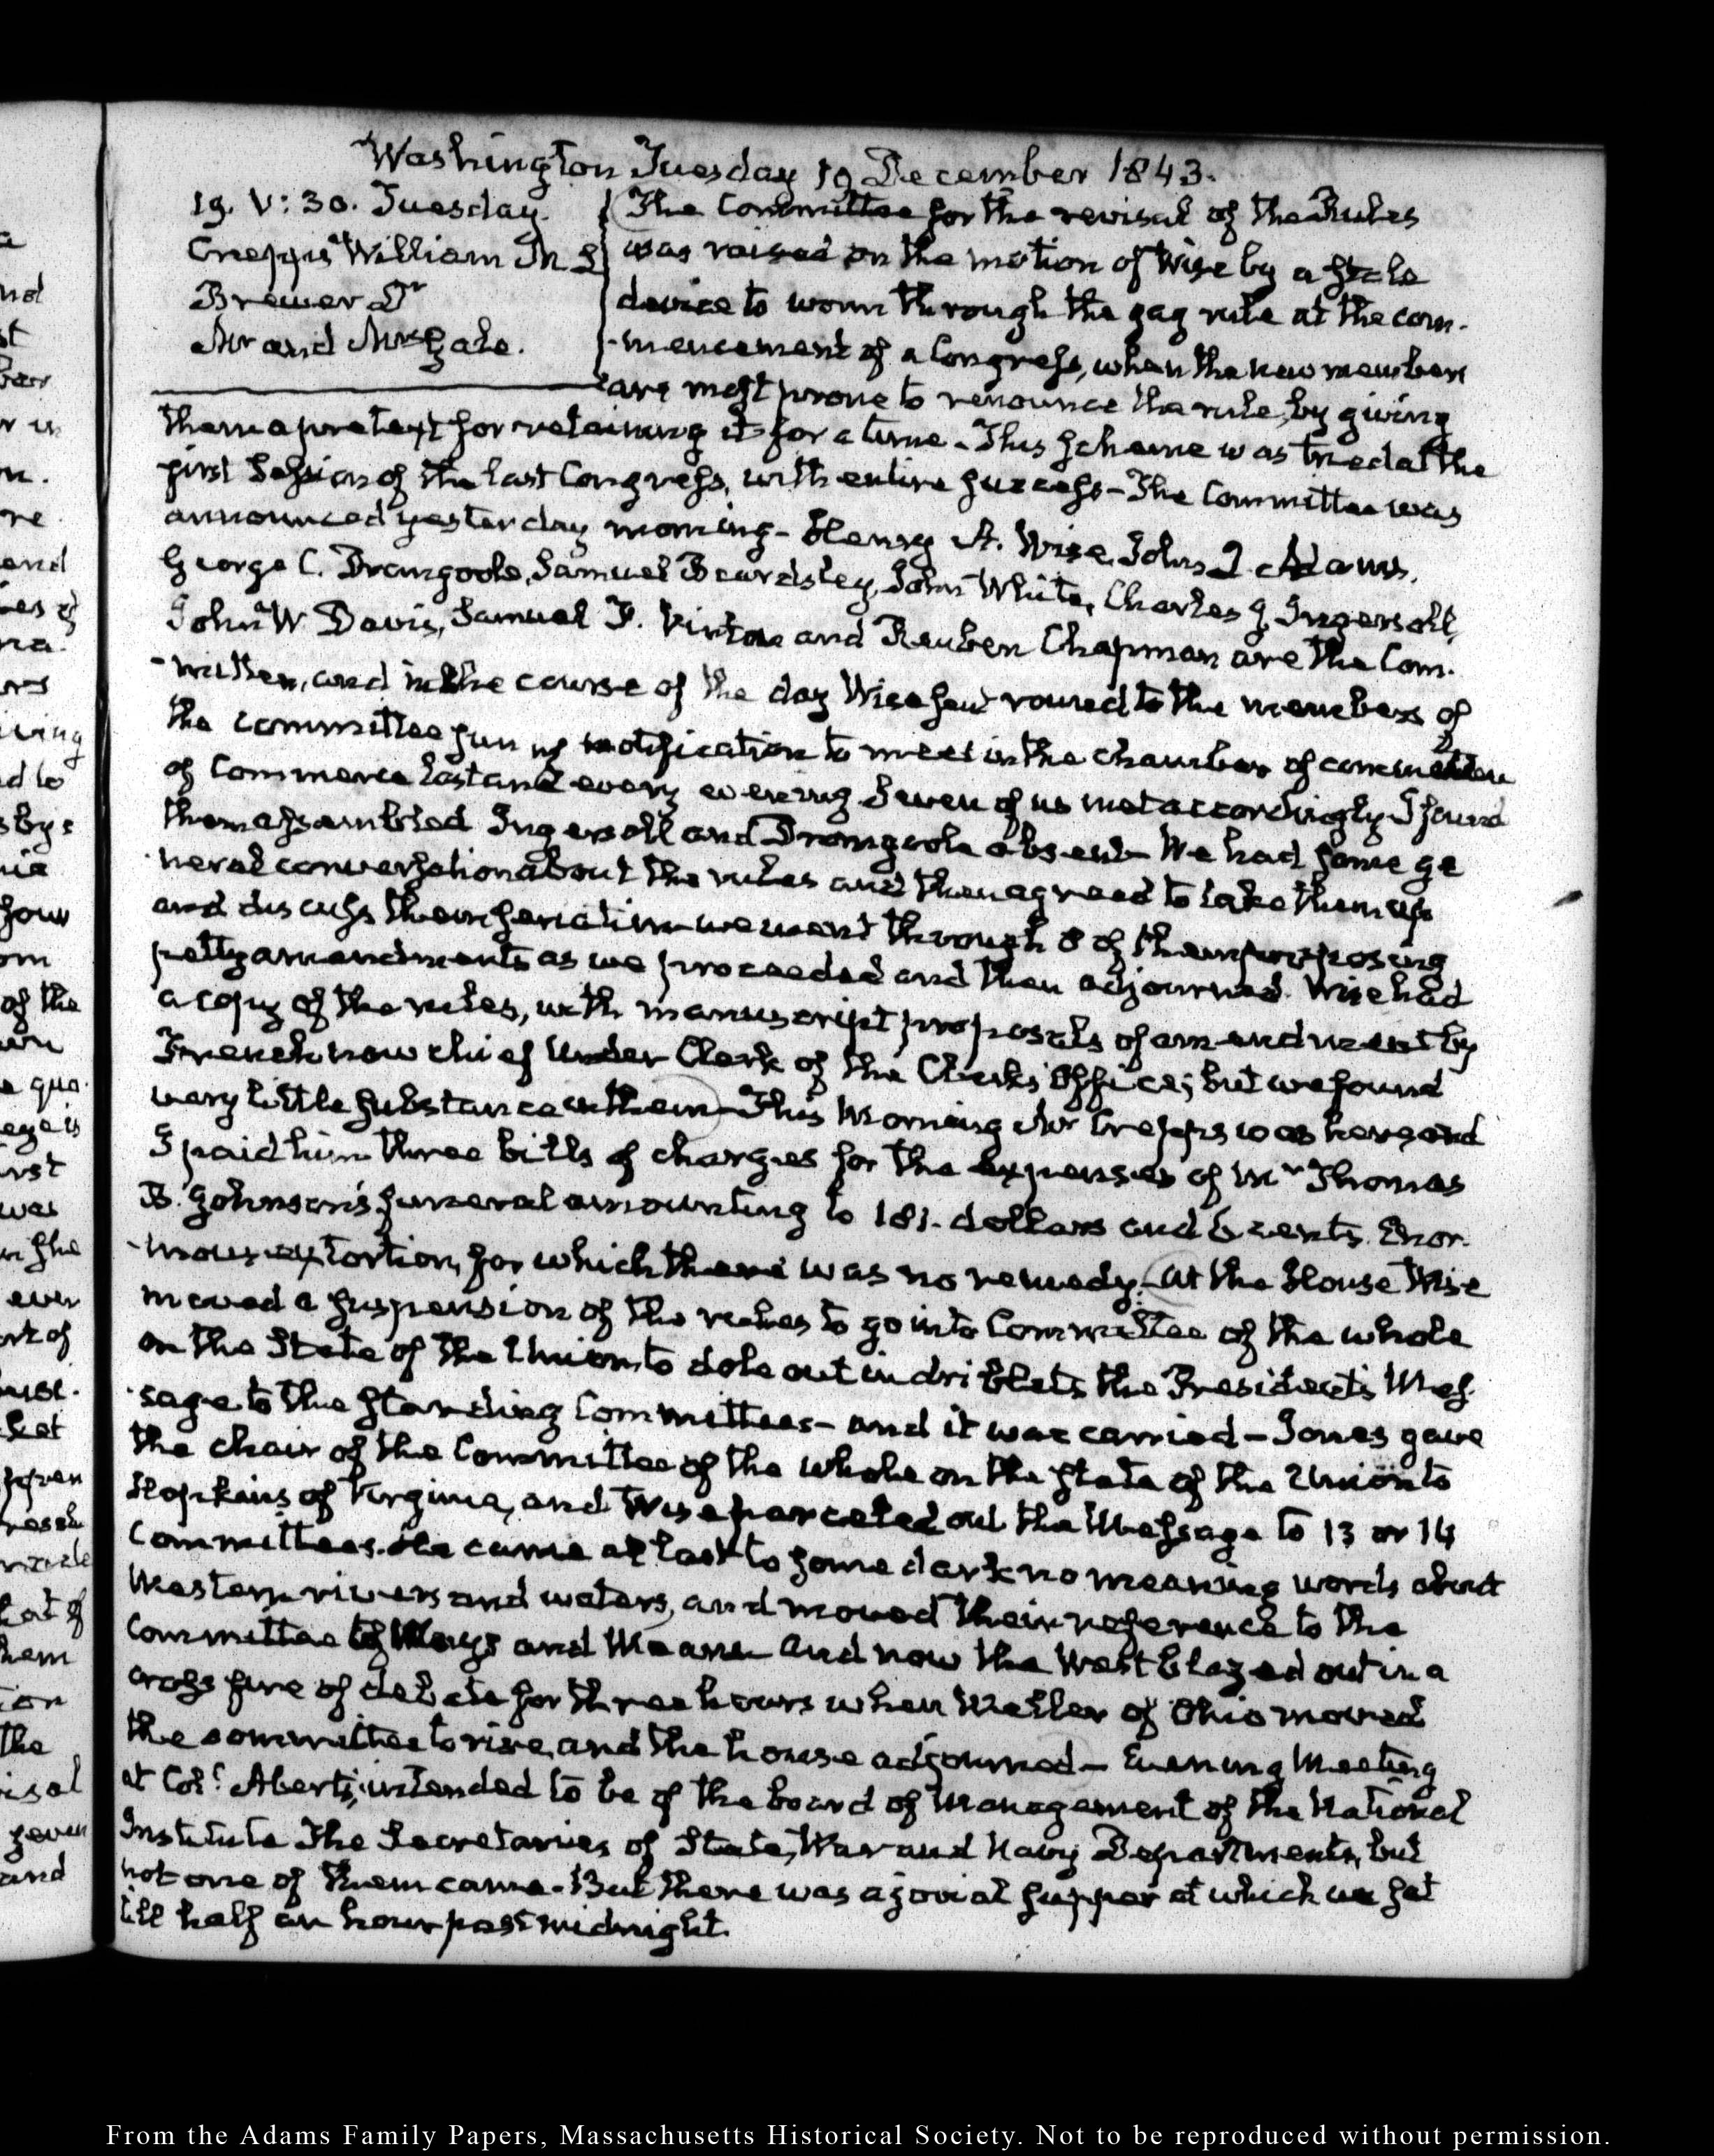 Washington Tuesday 19 December 1843.
19. V:30. Tuesday.
Cripps William M S
Brewer Dr
Mr and Mrs Gale.
The Committee for the revisal of the Rules
was raised on the motion of Wise by a stale
device to worm through the gag rule at the com-
-mencement of a Congress, when the new members
are most prone to renounce the rule, by giving
them a pretext for retaining it for a time - This scheme was tried at the
first Session of the last Congress, with entire success - The Committee was
announced yesterday morning - Henry A. Wise, John Q. Adams,
George C. Dromgoole, Samuel Beardsley, John White, Charles J. Ingersoll,
John W Davis, Samuel F. Vinton and Reuben Chapman are the Com-
-mittee, and in the course of the day Wise sent round to the members of
the committee notification to meet in the chamber of committee
of Commerce last and every evening Seven of us met accordingly I found
them assembled Ingersoll and Dromgoole absent - We had some ge
neral conversation about the rules and then agreed to take them up
and discuss them seriatim we went through 8 of them proposing
petty amendments as we proceeded and then adjourned. Wise had
a copy of the rules, with manuscript proposals of amendment by
French now chief under Clerk of the Clerks Office; but we found
very little substance in them - This Morning Mr Cripps was here, and
I paid him three bills of charges for the expenses of Mr Thomas
B. Johnson's funeral amounting to 181. dollars and 6 cents. Enor-
-mous extortion, for which there was no remedy. At the House Wise
moved a suspension of the rules to go into Committee of the whole
on the State of the Union, to dole out in driblets the President's Mes-
-sage to the standing Committees - and it was carried - Jones gave
the chair of the Committee of the whole on the state of the Union to
Hopkins of Virginia, and Wise parcelled out the Message to 13 or 14
Committees. He came at last to some dark no meaning words about
Western rivers and waters, and moved their reference to the
Committee of Ways and Means and now the West blazed out in a
cross fire of debate for three hours when Weller of Ohio moved
the committee to rise, and the house adjourned - Evening Meeting
at Coll. Abert's, intended to be of the board of Management of the National
Institute The Secretaries of State, War and Navy Departments, but
not one of them came. But there was a jovial supper at which we sat
till half an hour past midnight.
From the Adams Family Papers, Massachusetts Historical Society. Not to be reproduced without permission.